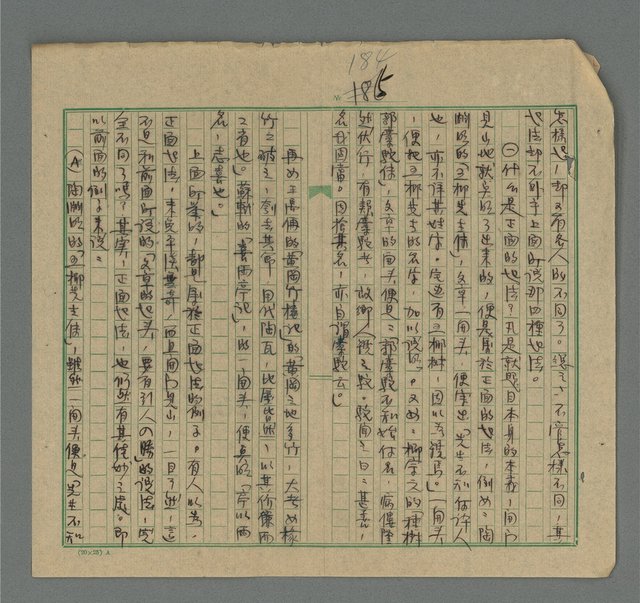 184
185
怎樣起,却又有各人的不同了。總之,不管怎樣不同,其
起法却不外乎上面所說那四種起法。
㊀什么是正面的起法?凡是就題目本身的本義,開門
見山地就點明了出來的,便是屬於正面的起法,例如:陶
淵明的「五柳先生傳」,文章一開頭,便寫出「先生不知何許人
也,亦不詳其姓字。宅邊有五柳樹,因以為號焉。」一開頭
,便把五柳先生的名字,加以說明。又如:柳宗元的「種樹
郭橐駝傳」,文章的開頭,便是:「郭橐駝不知始何名,病僂隆
然伏行,有類橐駝者,故鄉人號之駝。駝聞之曰:甚善,
名我固當。因捨其名,亦自謂橐駝云。」
再如王禹偁的「黃岡竹樓記」的「黃岡之地多竹,大者如椽
竹工破之,刳去其節,用代陶瓦,比屋皆然,以其價廉而
工省也。」蘇軾的「喜雨亭記」,的一開頭,便點明「亭以雨
名,志喜也。」
上面所舉的,都是屬於正面起法的例子。有人以為,
正面起法,未免平淡無奇,而且開門見山,一目了然,這
不是和前面所說的「文章的起頭,要有引人入勝」的說法,完
全不同了嗎?其實,正面起法,也仍然有其佳妙之處。即
以前面的例子來說。
Ⓐ 陶淵明的「五柳先生傳」,雖然一開頭便是「先生不知
(20×25) A